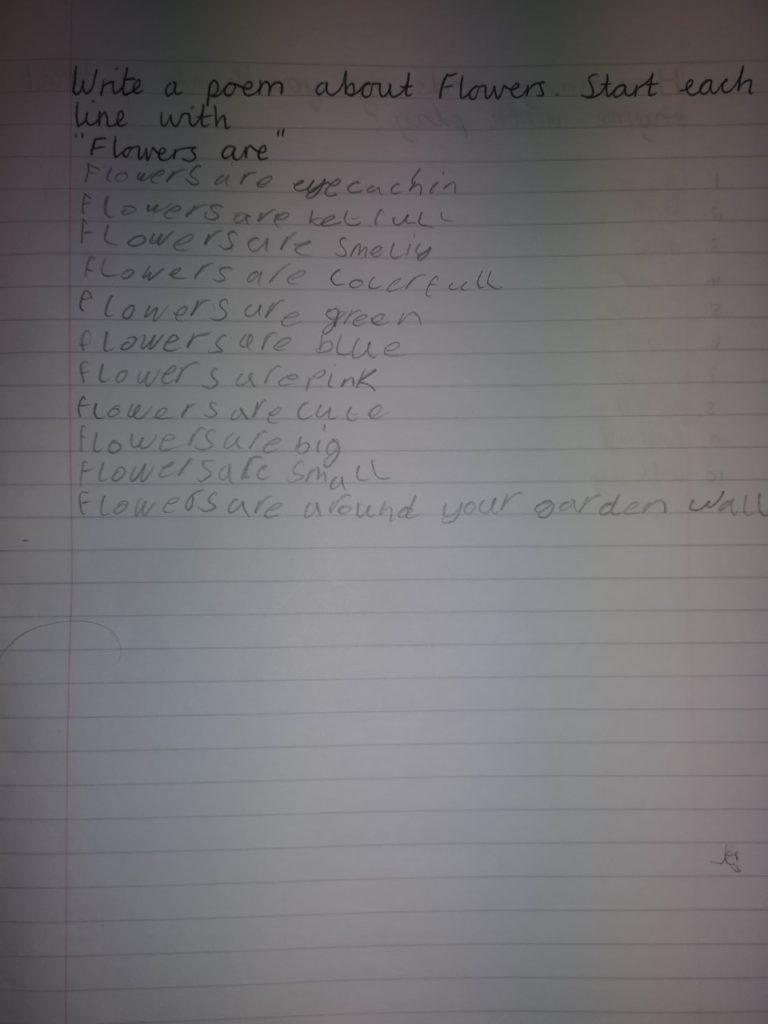 Write a poem about Flowers. Start each
line with
"Flowers are"
Flowers are eyecachin
Flowers are betifull
Flowers are smeliy
flowers are coverfull
Flowers are green
flowers are blue
flowers are pink
flowers are cute
flowers are big
flowers are small
flowers are around your garden wall